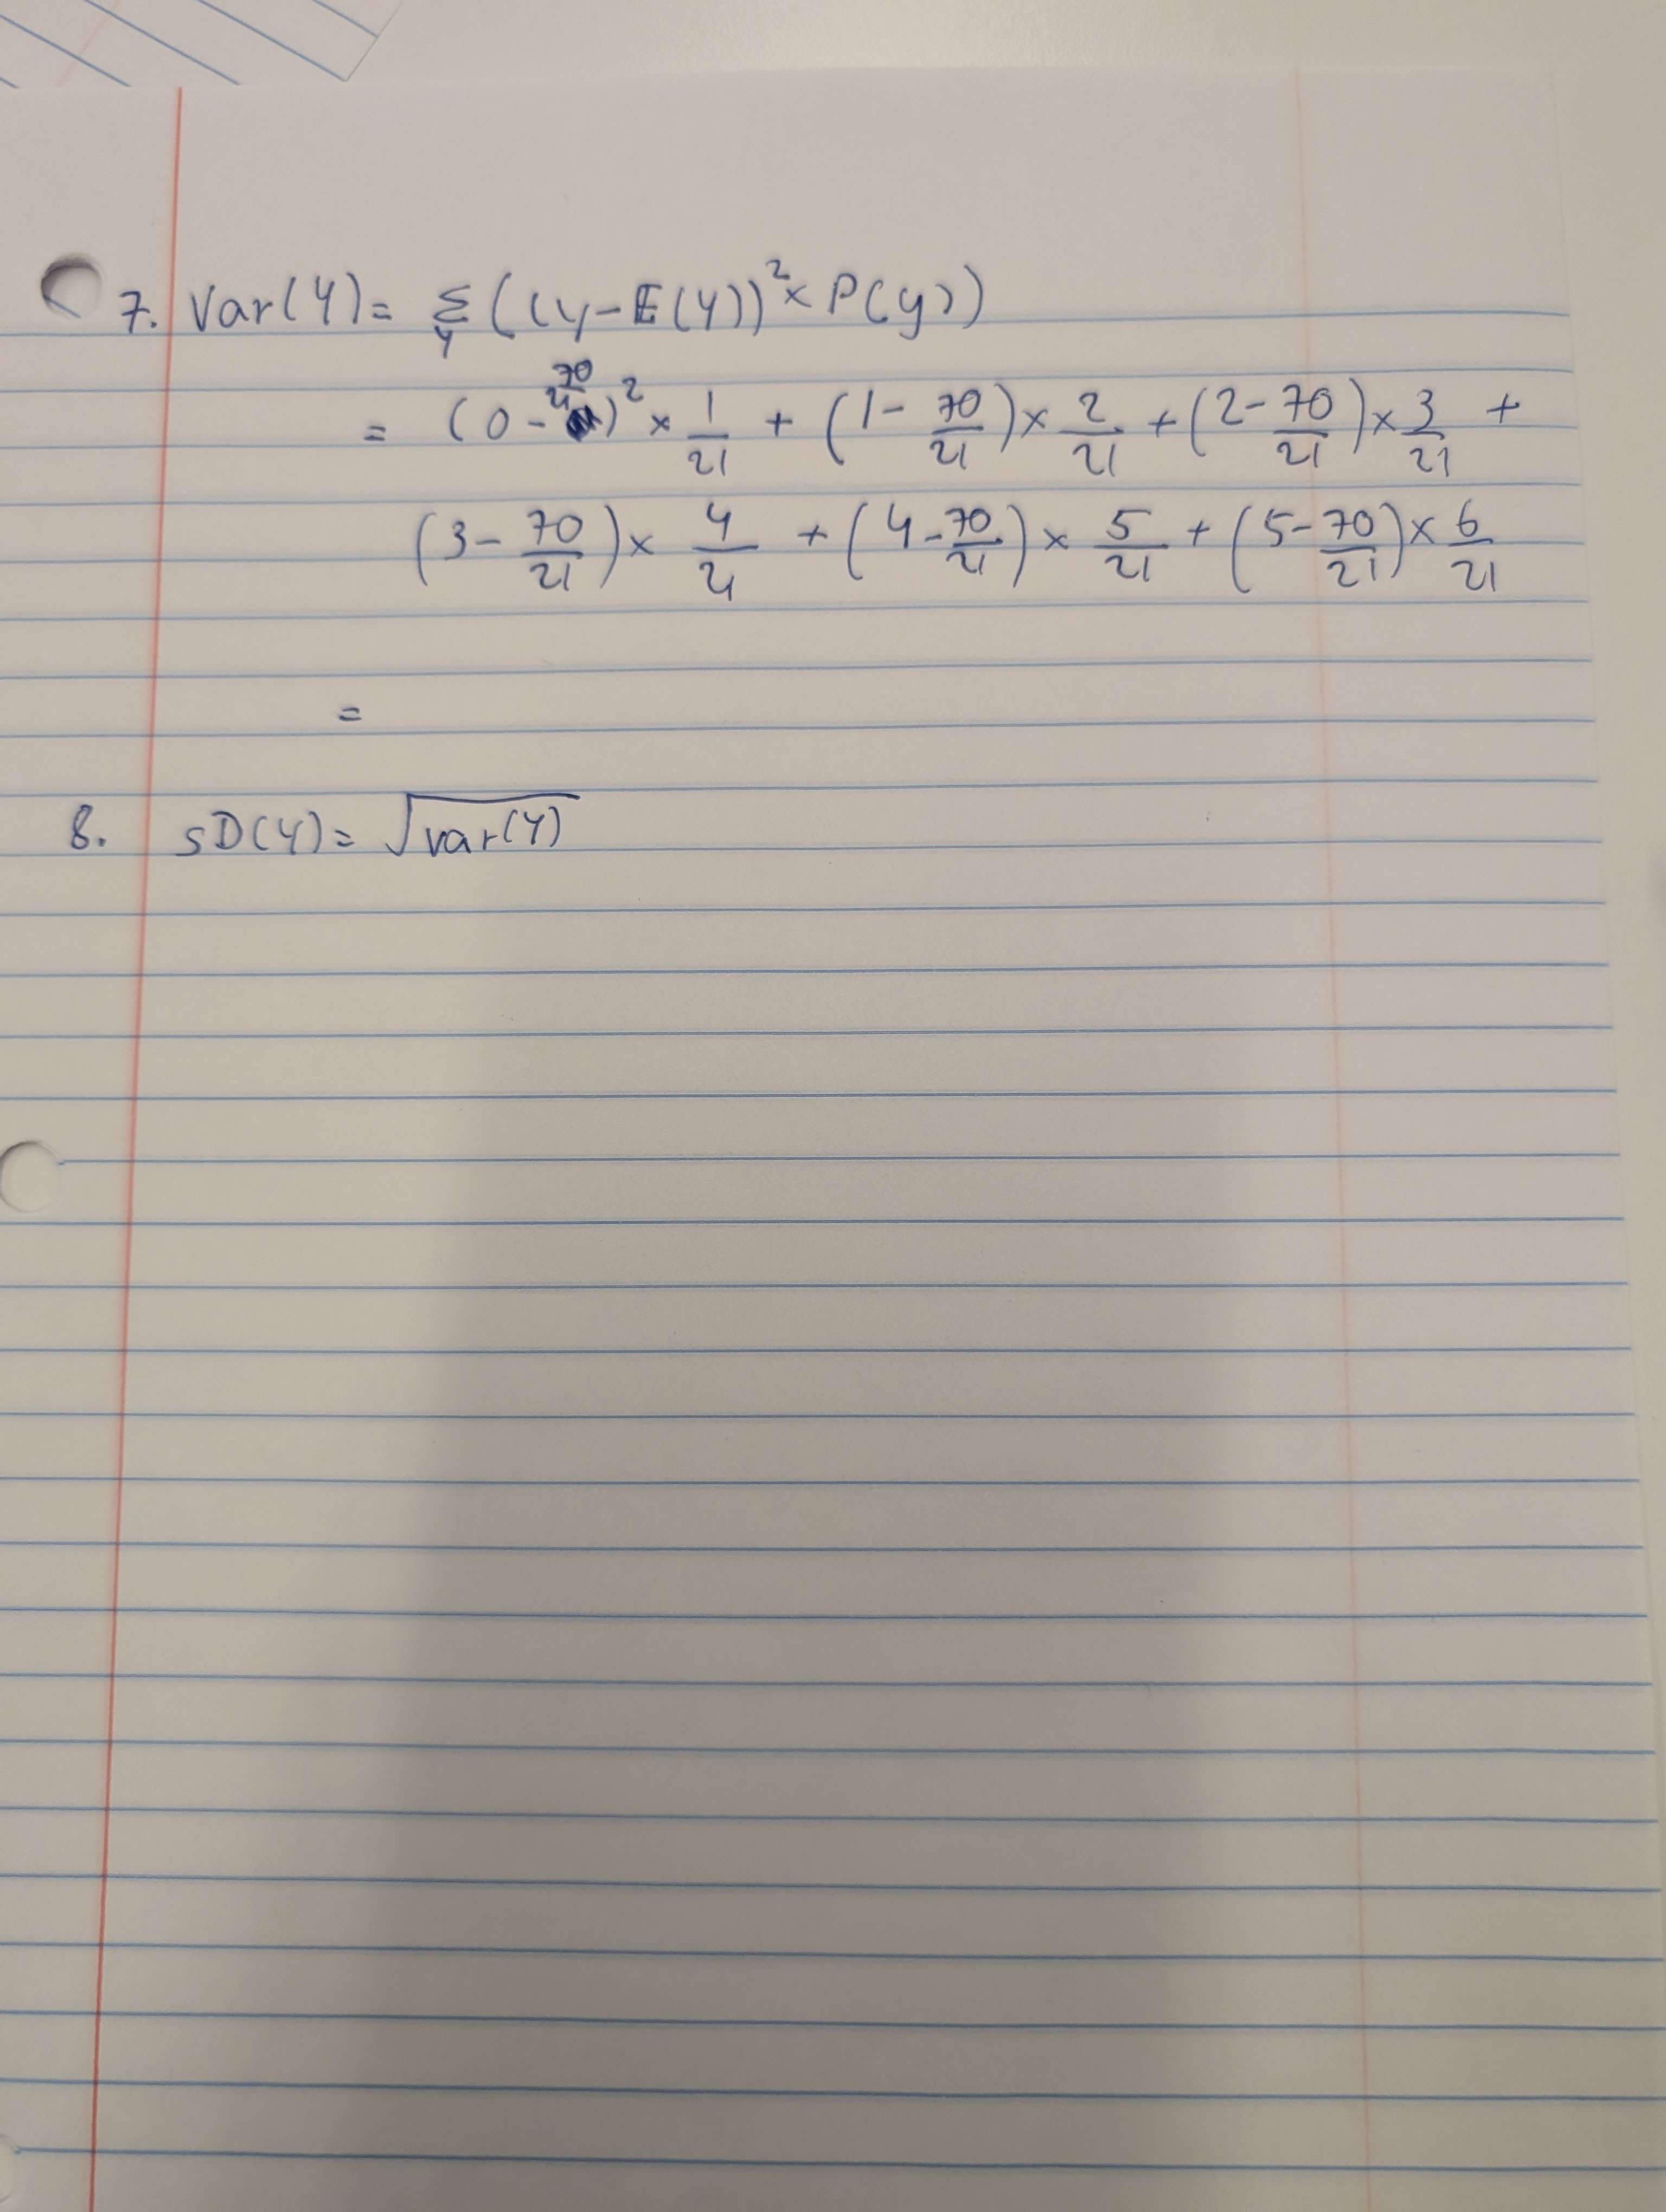 7. Var(Y) = Σ_y ((y-E(Y))² × P(y))
= (0 - 70/21)² × 1/21 + (1 - 70/21) × 2/21 + (2 - 70/21) × 3/21 +
(3 - 70/21) × 4/21 + (4 - 70/21) × 5/21 + (5 - 70/21) × 6/21
=
8. SD(Y) = √var(Y)